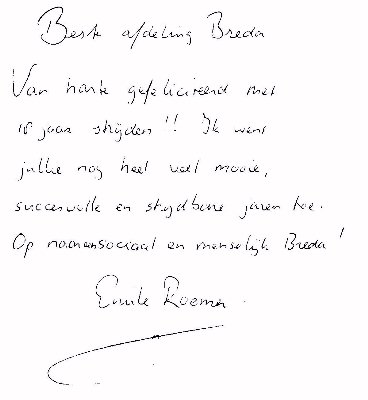 Beste afdeling Breda
Van harte gefeliciteerd met
jaar strijden!! Ik wens
jullie nog heel veel mooie,
succesvolle en strijdbare jaren toe.
Op naar een sociaal en menselijk Breda!
Emile Roemer